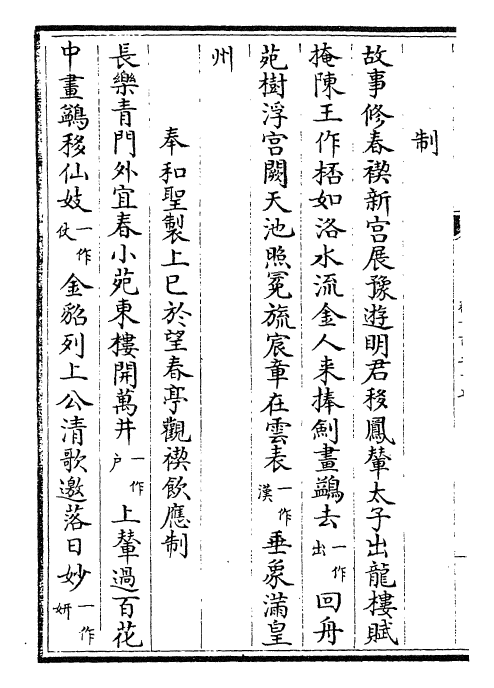 制
故事修春禊新宮展豫遊明君移鳳輦太子出龍樓賦
掩陳王作桮如洛水流金人来捧劍畫鷁去一作出回舟
苑樹浮宮闕天池照冕旒宸章在雲表一作漢垂象滿皇
州
奉和聖製上巳於望春亭觀禊飲應制
長樂青門外宜春小苑東樓開萬井一作户上輦過百花
中畫鷁移仙妓一作伎金貂列上公清歌邀落日妙一作妍